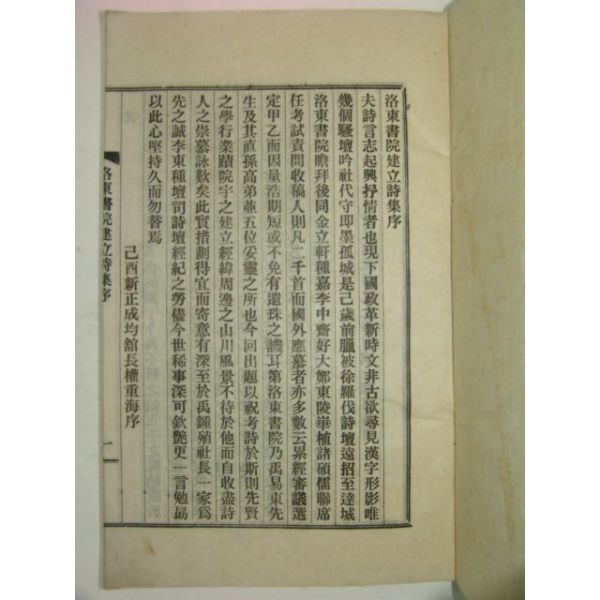 洛東書院建立詩集序
夫詩言志起興抒情者也現下國政革新時文非古欲尋見漢字形影唯
幾個騷壇吟社代守即墨孤城是己歲前臘被徐羅伐詩壇遠招至達城
洛東書院瞻拜後同金立軒種嘉李中齋好大鄭東陵崋植諸碩儒聯席
任考試責問收稿人則凡二千首而國外應募者亦多數云累經審議選
定甲乙而因量浩期短或不免有遺珠之譏耳第洛東書院乃禹易東先
生及其直孫高弟並五位妥靈之所也今回出題以祝考詩於斯則先賢
之學行業蹟院宇之建立經緯周邊之山川風景不待於他而自收盡詩
人之崇慕詠歎矣此實措劃得宜而寄意有深至於禹鍾殖社長一家爲
先之誠李東種壇司詩壇經紀之勞儘今世稀事深可欽艶更一言勉勗
以此心堅持久而勿替焉
己酉新正成均舘長權重海序
洛東書院建立詩集序
一